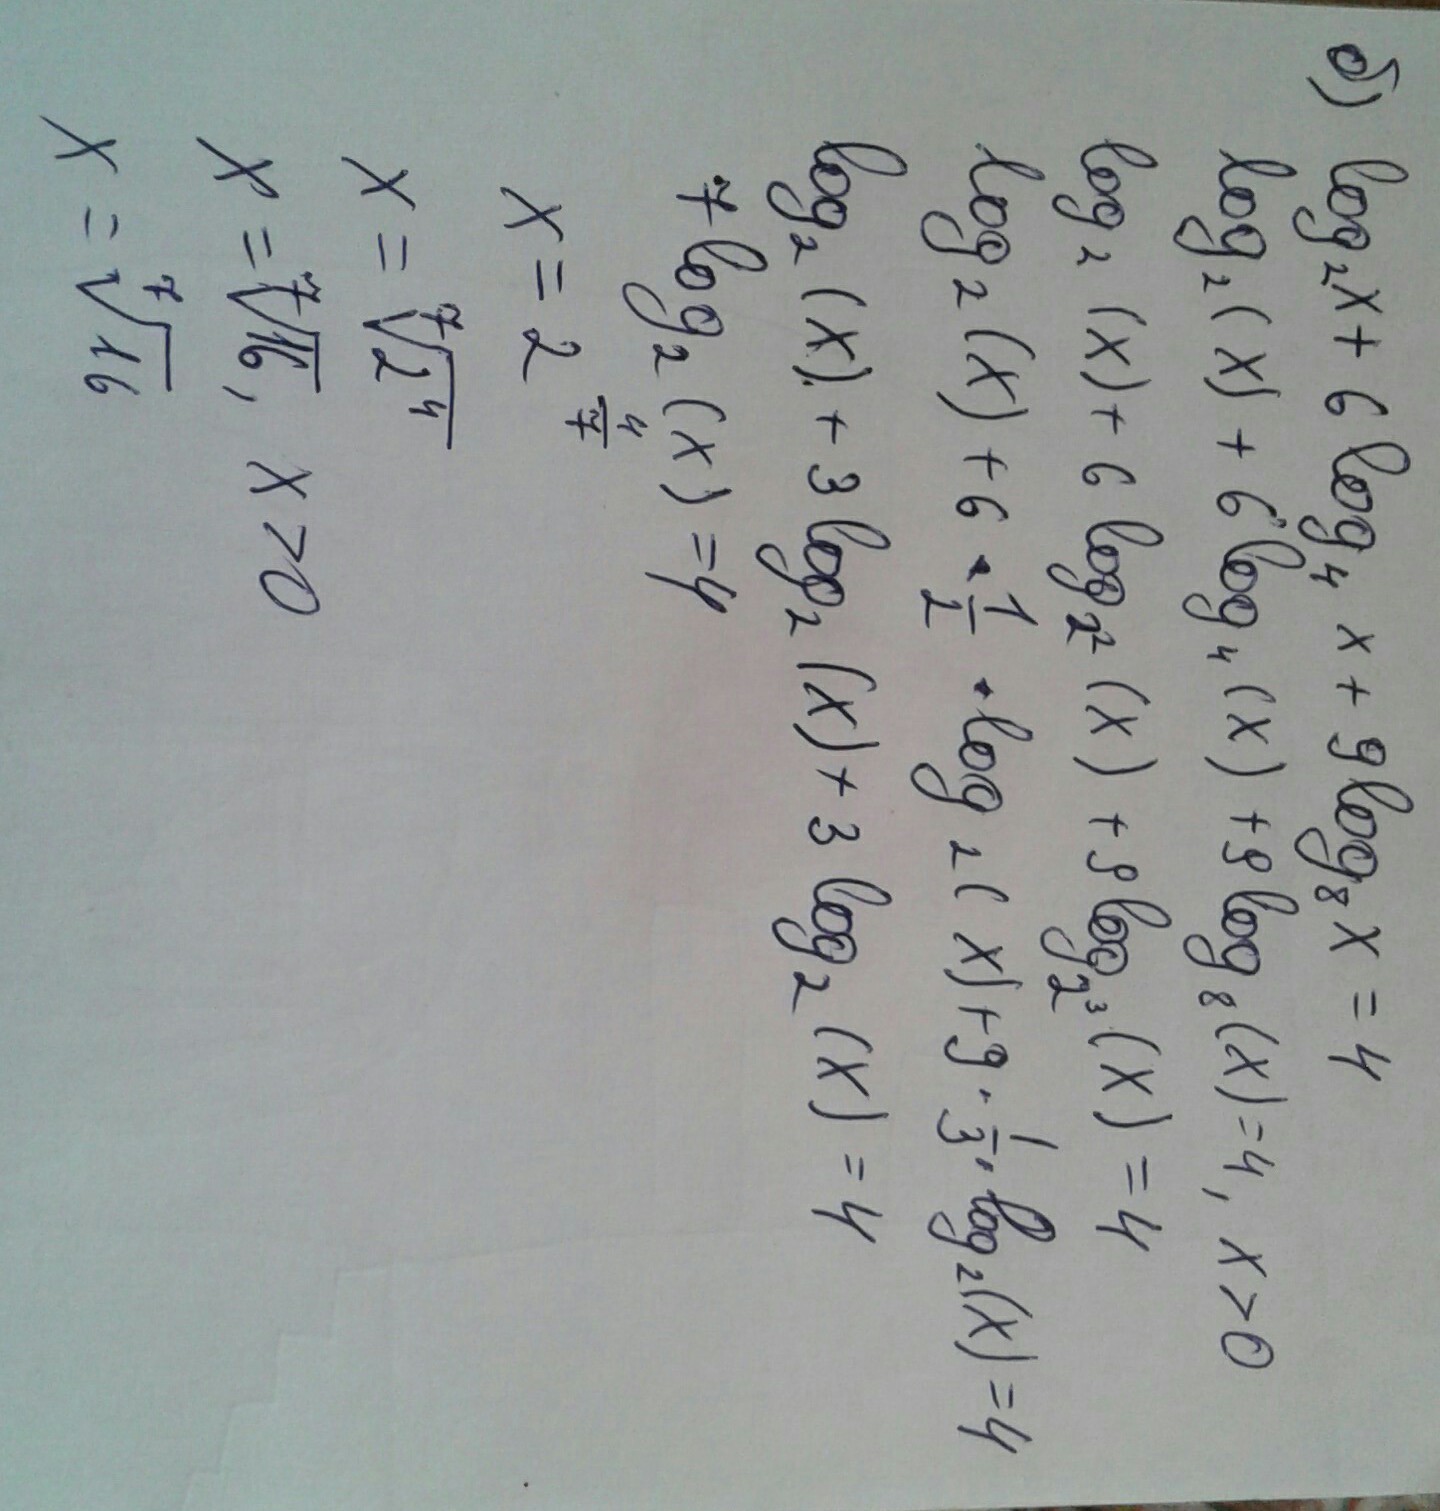 б) log₂x + 6 log₄ x + 9 log₈ x = 4
log₂(x) + 6 log₄(x) + 9 log₈(x) = 4, x > 0
log₂ (x) + 6 log₂² (x) + 9 log₂³ (x) = 4
log₂ (x) + 6 · 1/2 · log₂(x) + 9 · 1/3 · log₂(x) = 4
log₂ (x) + 3 log₂ (x) + 3 log₂ (x) = 4
7 log₂ (x) = 4
x = 2^(4/7)
x = ⁷√2⁴
x = ⁷√16, x > 0
x = ⁷√16